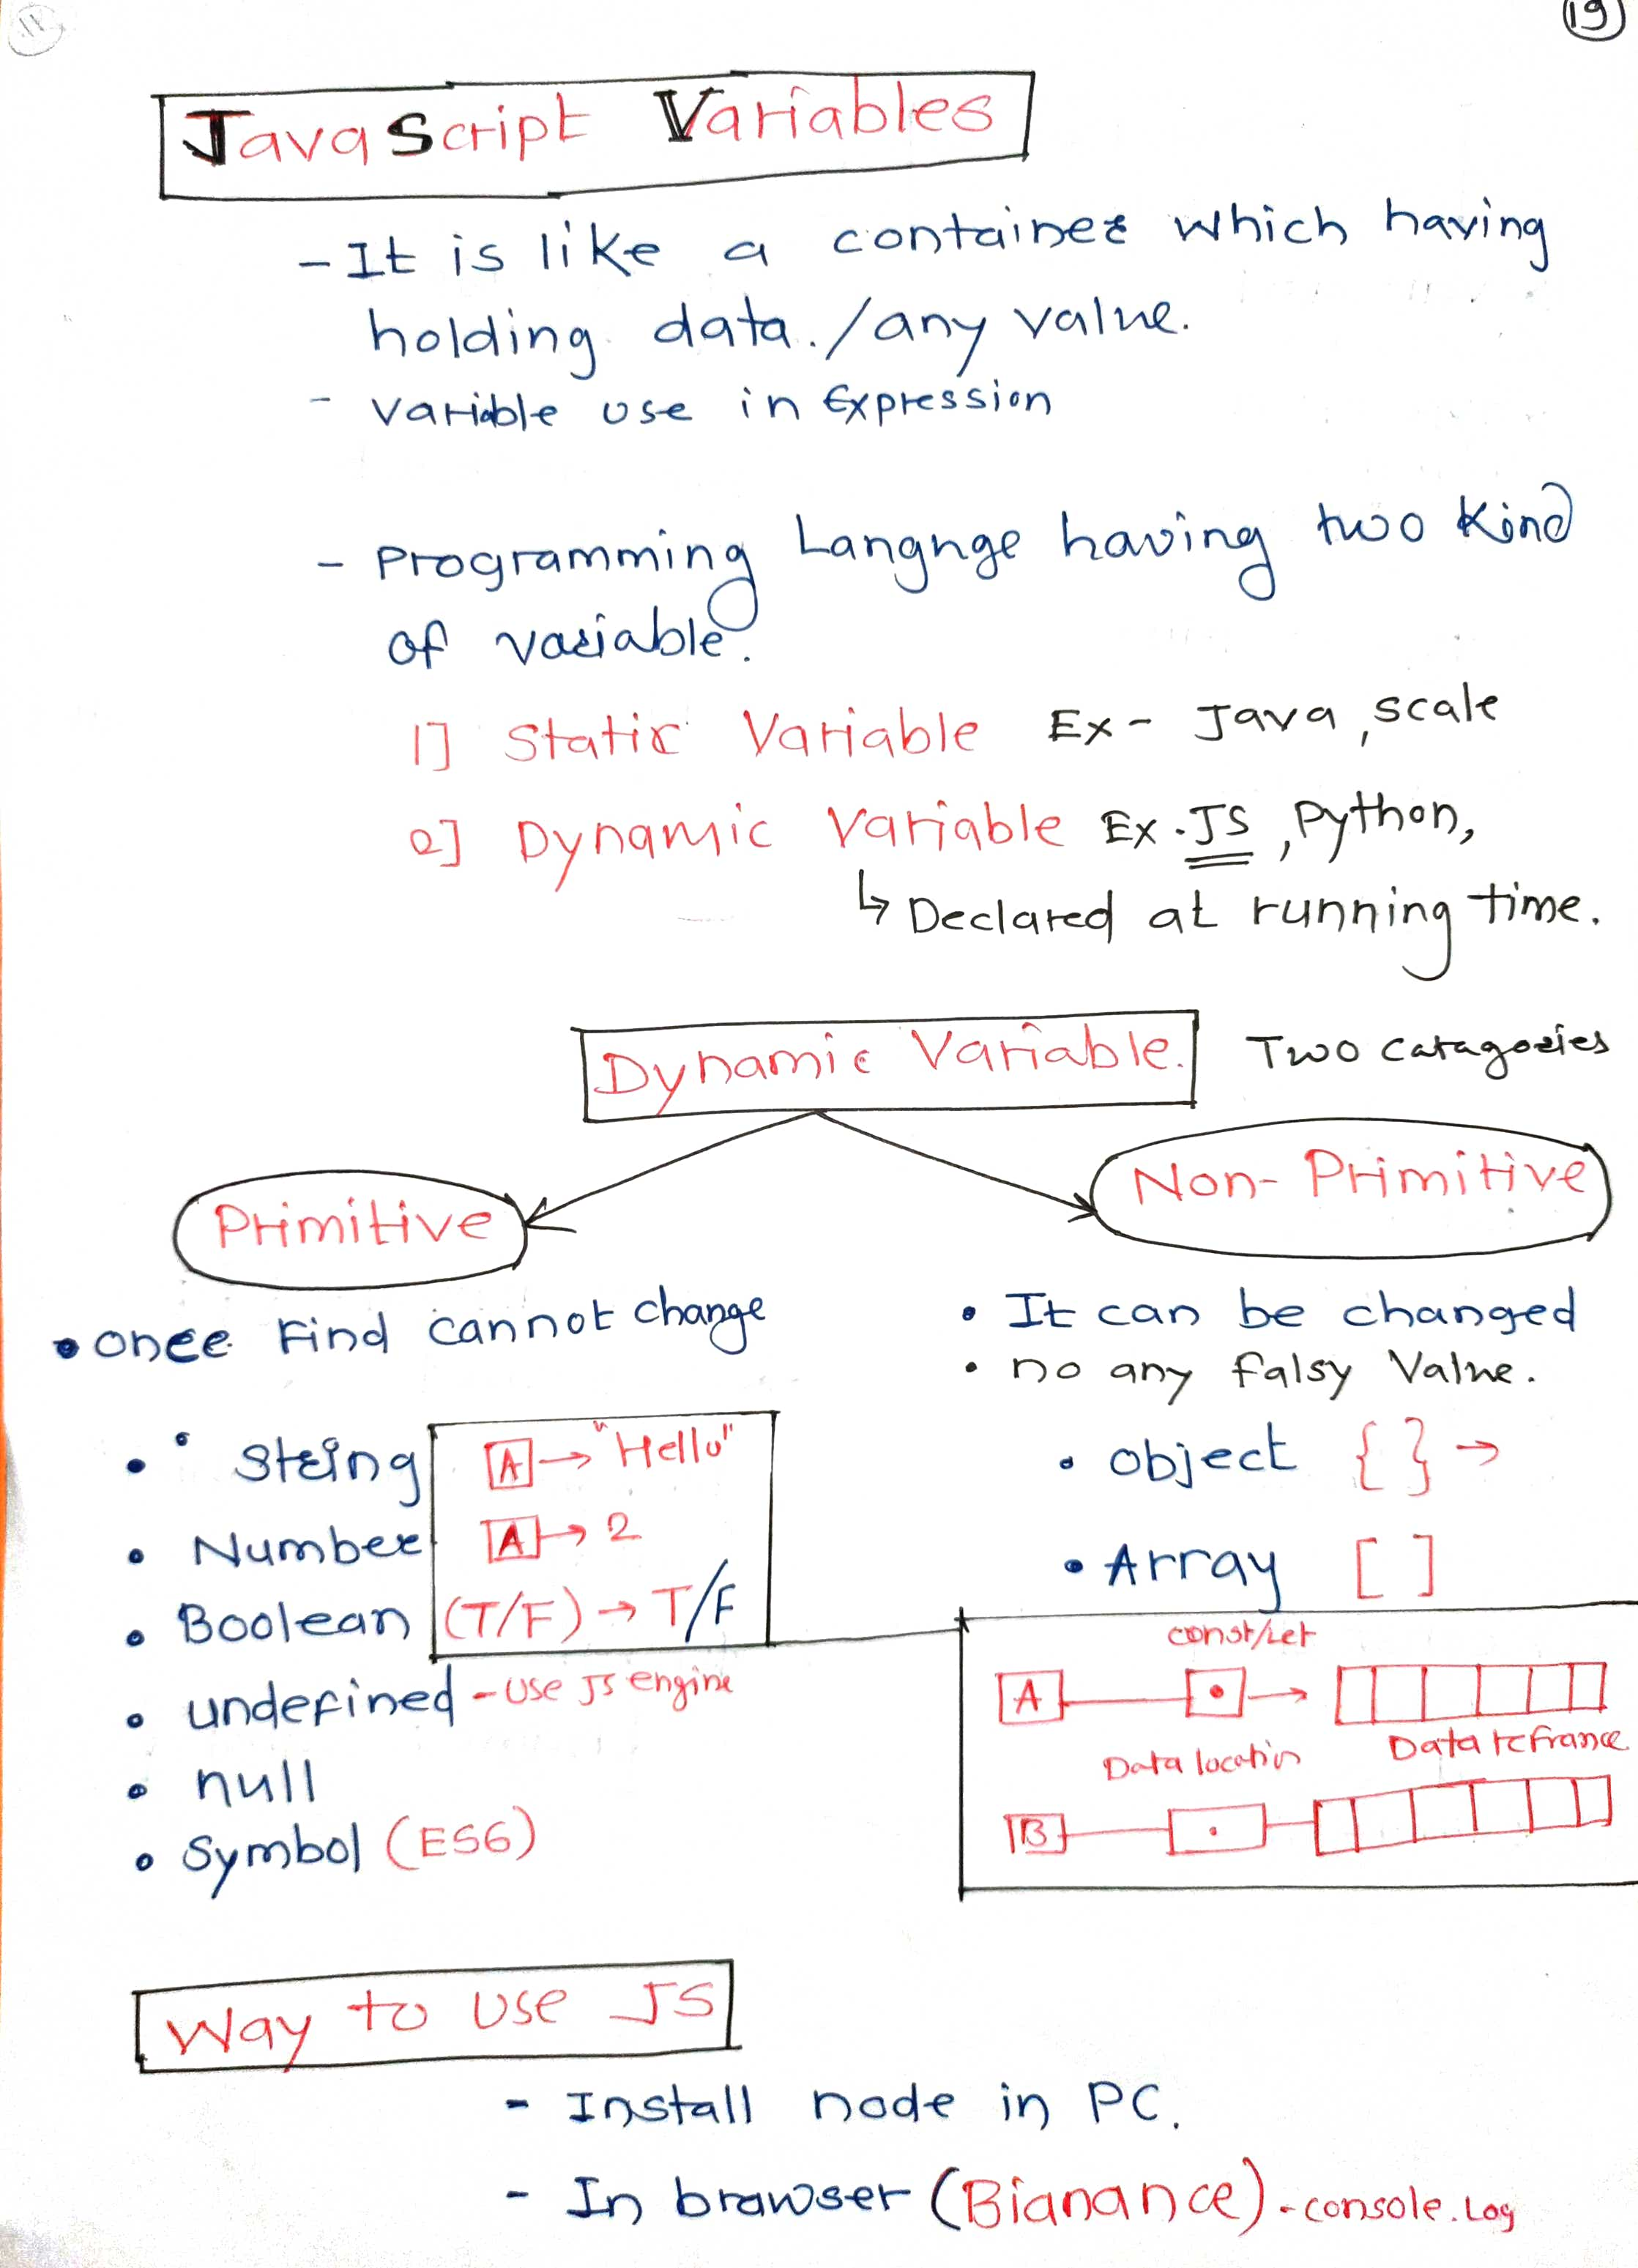 19
JavaScript Variables
- It is like a container which having
holding data. /any value.
- Variable use in Expression
- Programming Langnge having two Kind
of variable.
1] Static Variable Ex- Java, scale
2] Dynamic Variable Ex. JS, Python,
↳ Declared at running time.
Dynamic Variable. Two Catagories
Primitive
Non-Primitive
• Once Find cannot change
• It can be changed
• no any falsy Value.
• String [A] → "Hello"
• Number [A] → 2
• Boolean (T/F) → T/F
• undefined - use JS engine
• null
• Symbol (ES6)
• Object { } →
• Array [ ]
const/Let
A
Data locatin
Data refrance
B
Way to use JS
- Install node in PC.
- In brawser (Bianance) - console.Log